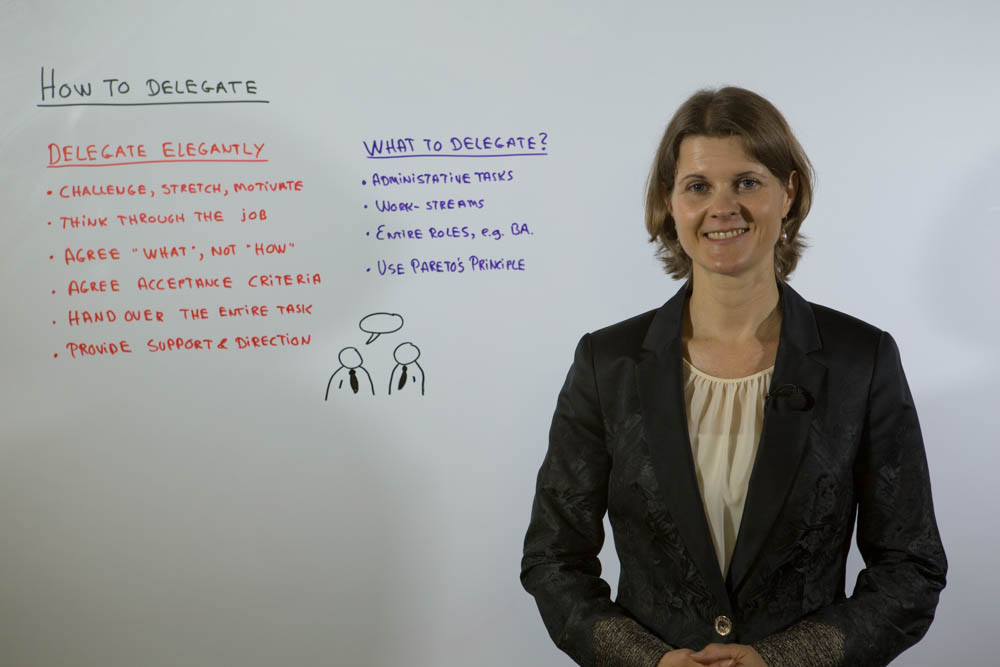 HOW TO DELEGATE
DELEGATE ELEGANTLY
• CHALLENGE, STRETCH, MOTIVATE
• THINK THROUGH THE JOB
• AGREE "WHAT", NOT "HOW"
• AGREE ACCEPTANCE CRITERIA
• HAND OVER THE ENTIRE TASK
• PROVIDE SUPPORT & DIRECTION
WHAT TO DELEGATE?
• ADMINISTATIVE TASKS
• WORK-STREAMS
• ENTIRE ROLES, e.g. BA.
• USE PARETO'S PRINCIPLE